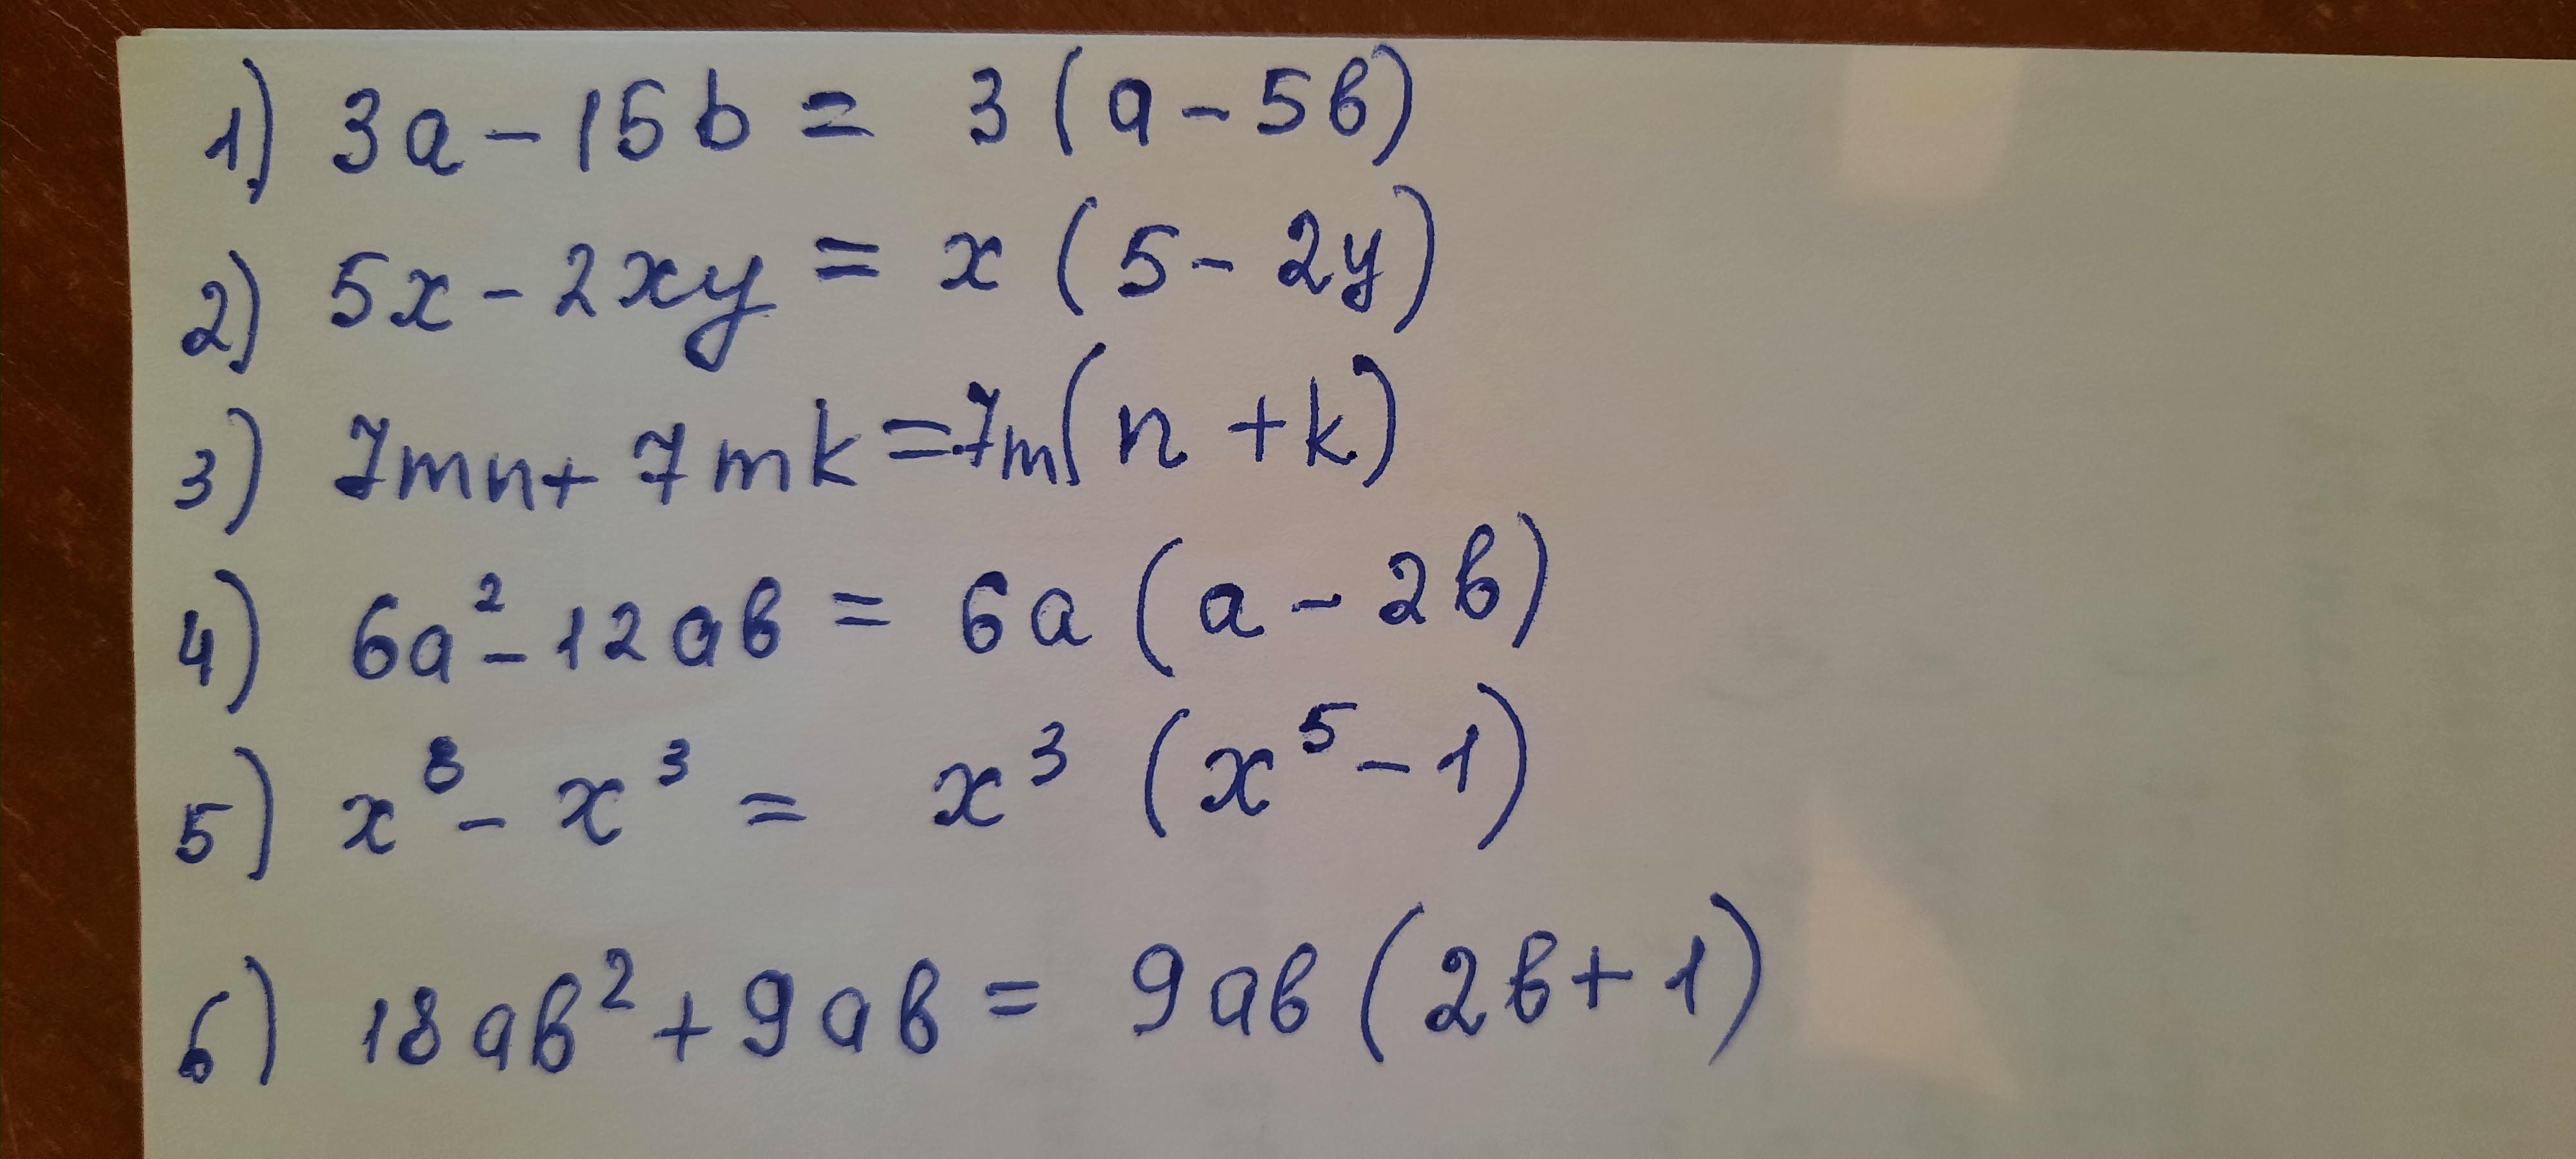 1) 3a - 15b = 3(a - 5b)
2) 5x - 2xy = x(5 - 2y)
3) 7mn + 7mk = 7m(n + k)
4) 6a² - 12ab = 6a(a - 2b)
5) x⁸ - x³ = x³(x⁵ - 1)
6) 18ab² + 9ab = 9ab(2b + 1)